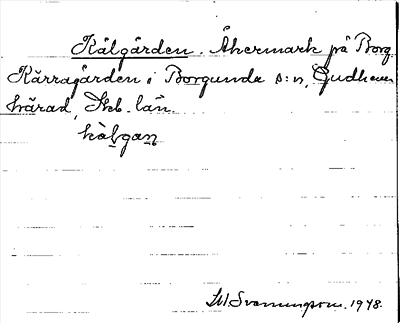 Kålgården. Åkermark på Borg.
Kärragården i Borgunda s:n, Gudhems
härad, Skb. län.
kålgan
W. Svanungson. 1948.